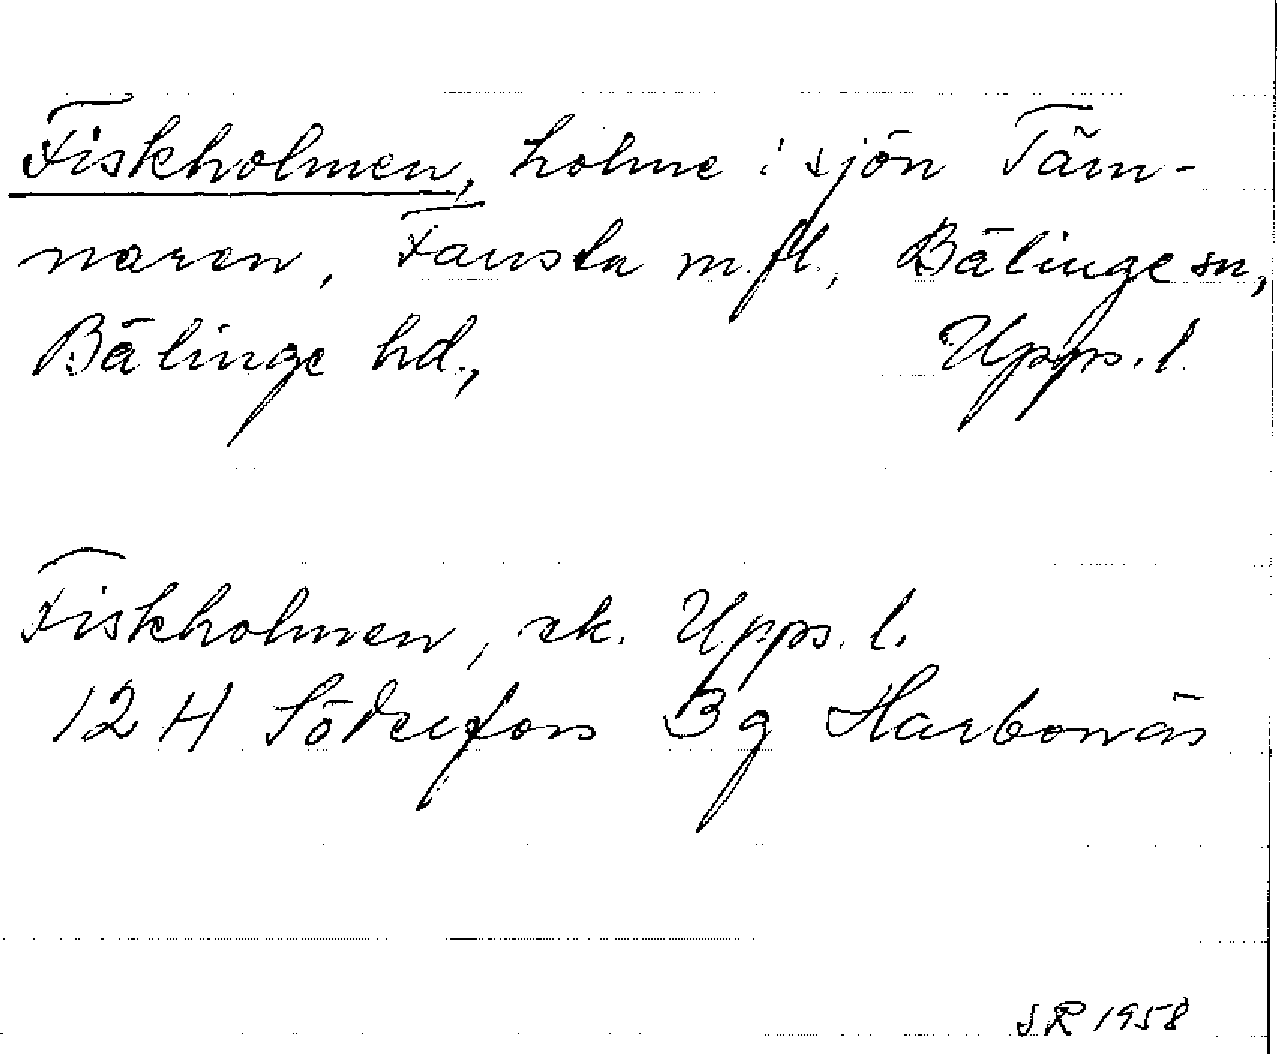 Fiskholmen, holme i sjön Täm-
naren, Fansta m.fl., Bälinge sn,
Bälinge hd., Upps. l.
Fiskholmen, ek. Upps. l.
12 H Söderfors 3 g Harbonäs
SR 1958